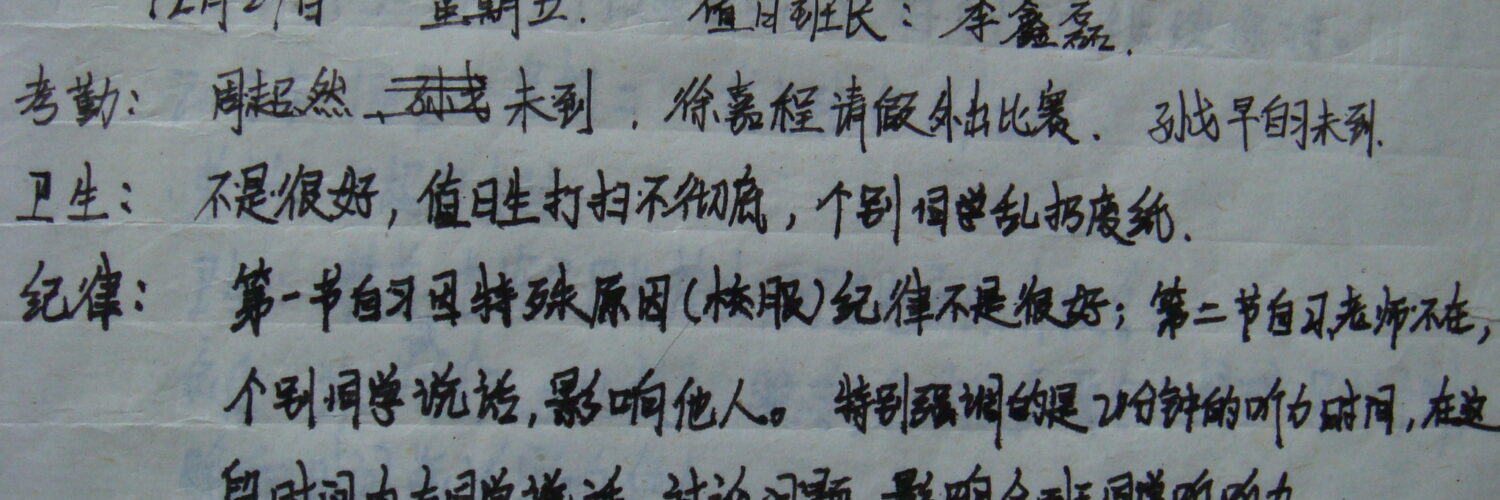 12月29日 星期五. 值日班长：李鑫磊.
考勤： 周超然、孙戈未到，徐嘉程请假外出比赛. 孙戈早自习未到.
卫生： 不是很好，值日生打扫不彻底，个别同学乱扔废纸.
纪律： 第一节自习因特殊原因(校服)纪律不是很好；第二节自习老师不在，
个别同学说话，影响他人。 特别强调的是20分钟的听力时间，在这
段时间内有同学说话、讨论问题，影响全班同学听听力